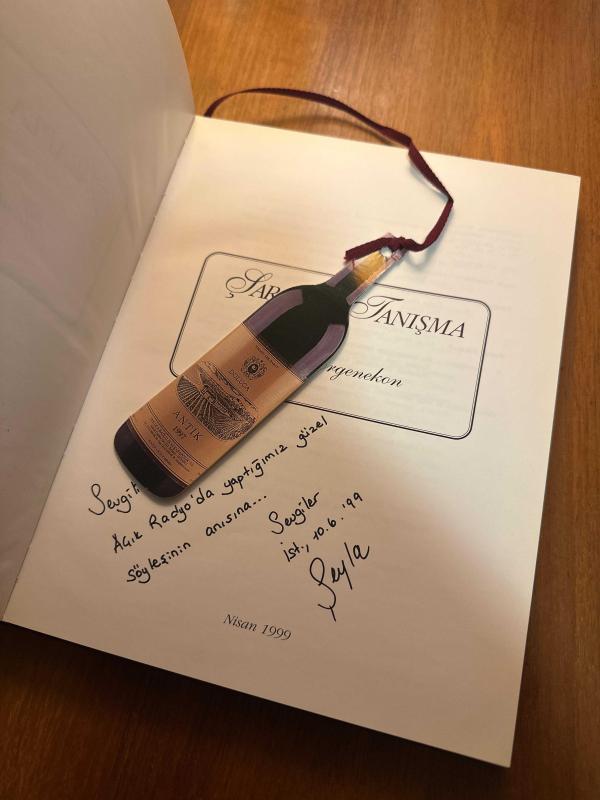 ŞAR TANIŞMA
rgenekon
DOLUCA
ANTİK
1997
Sevgili
Açık Radyo'da yaptığımız güzel
söyleşinin anısına...
Sevgiler
İst., 10.6.'99
Şeyla
Nisan 1999